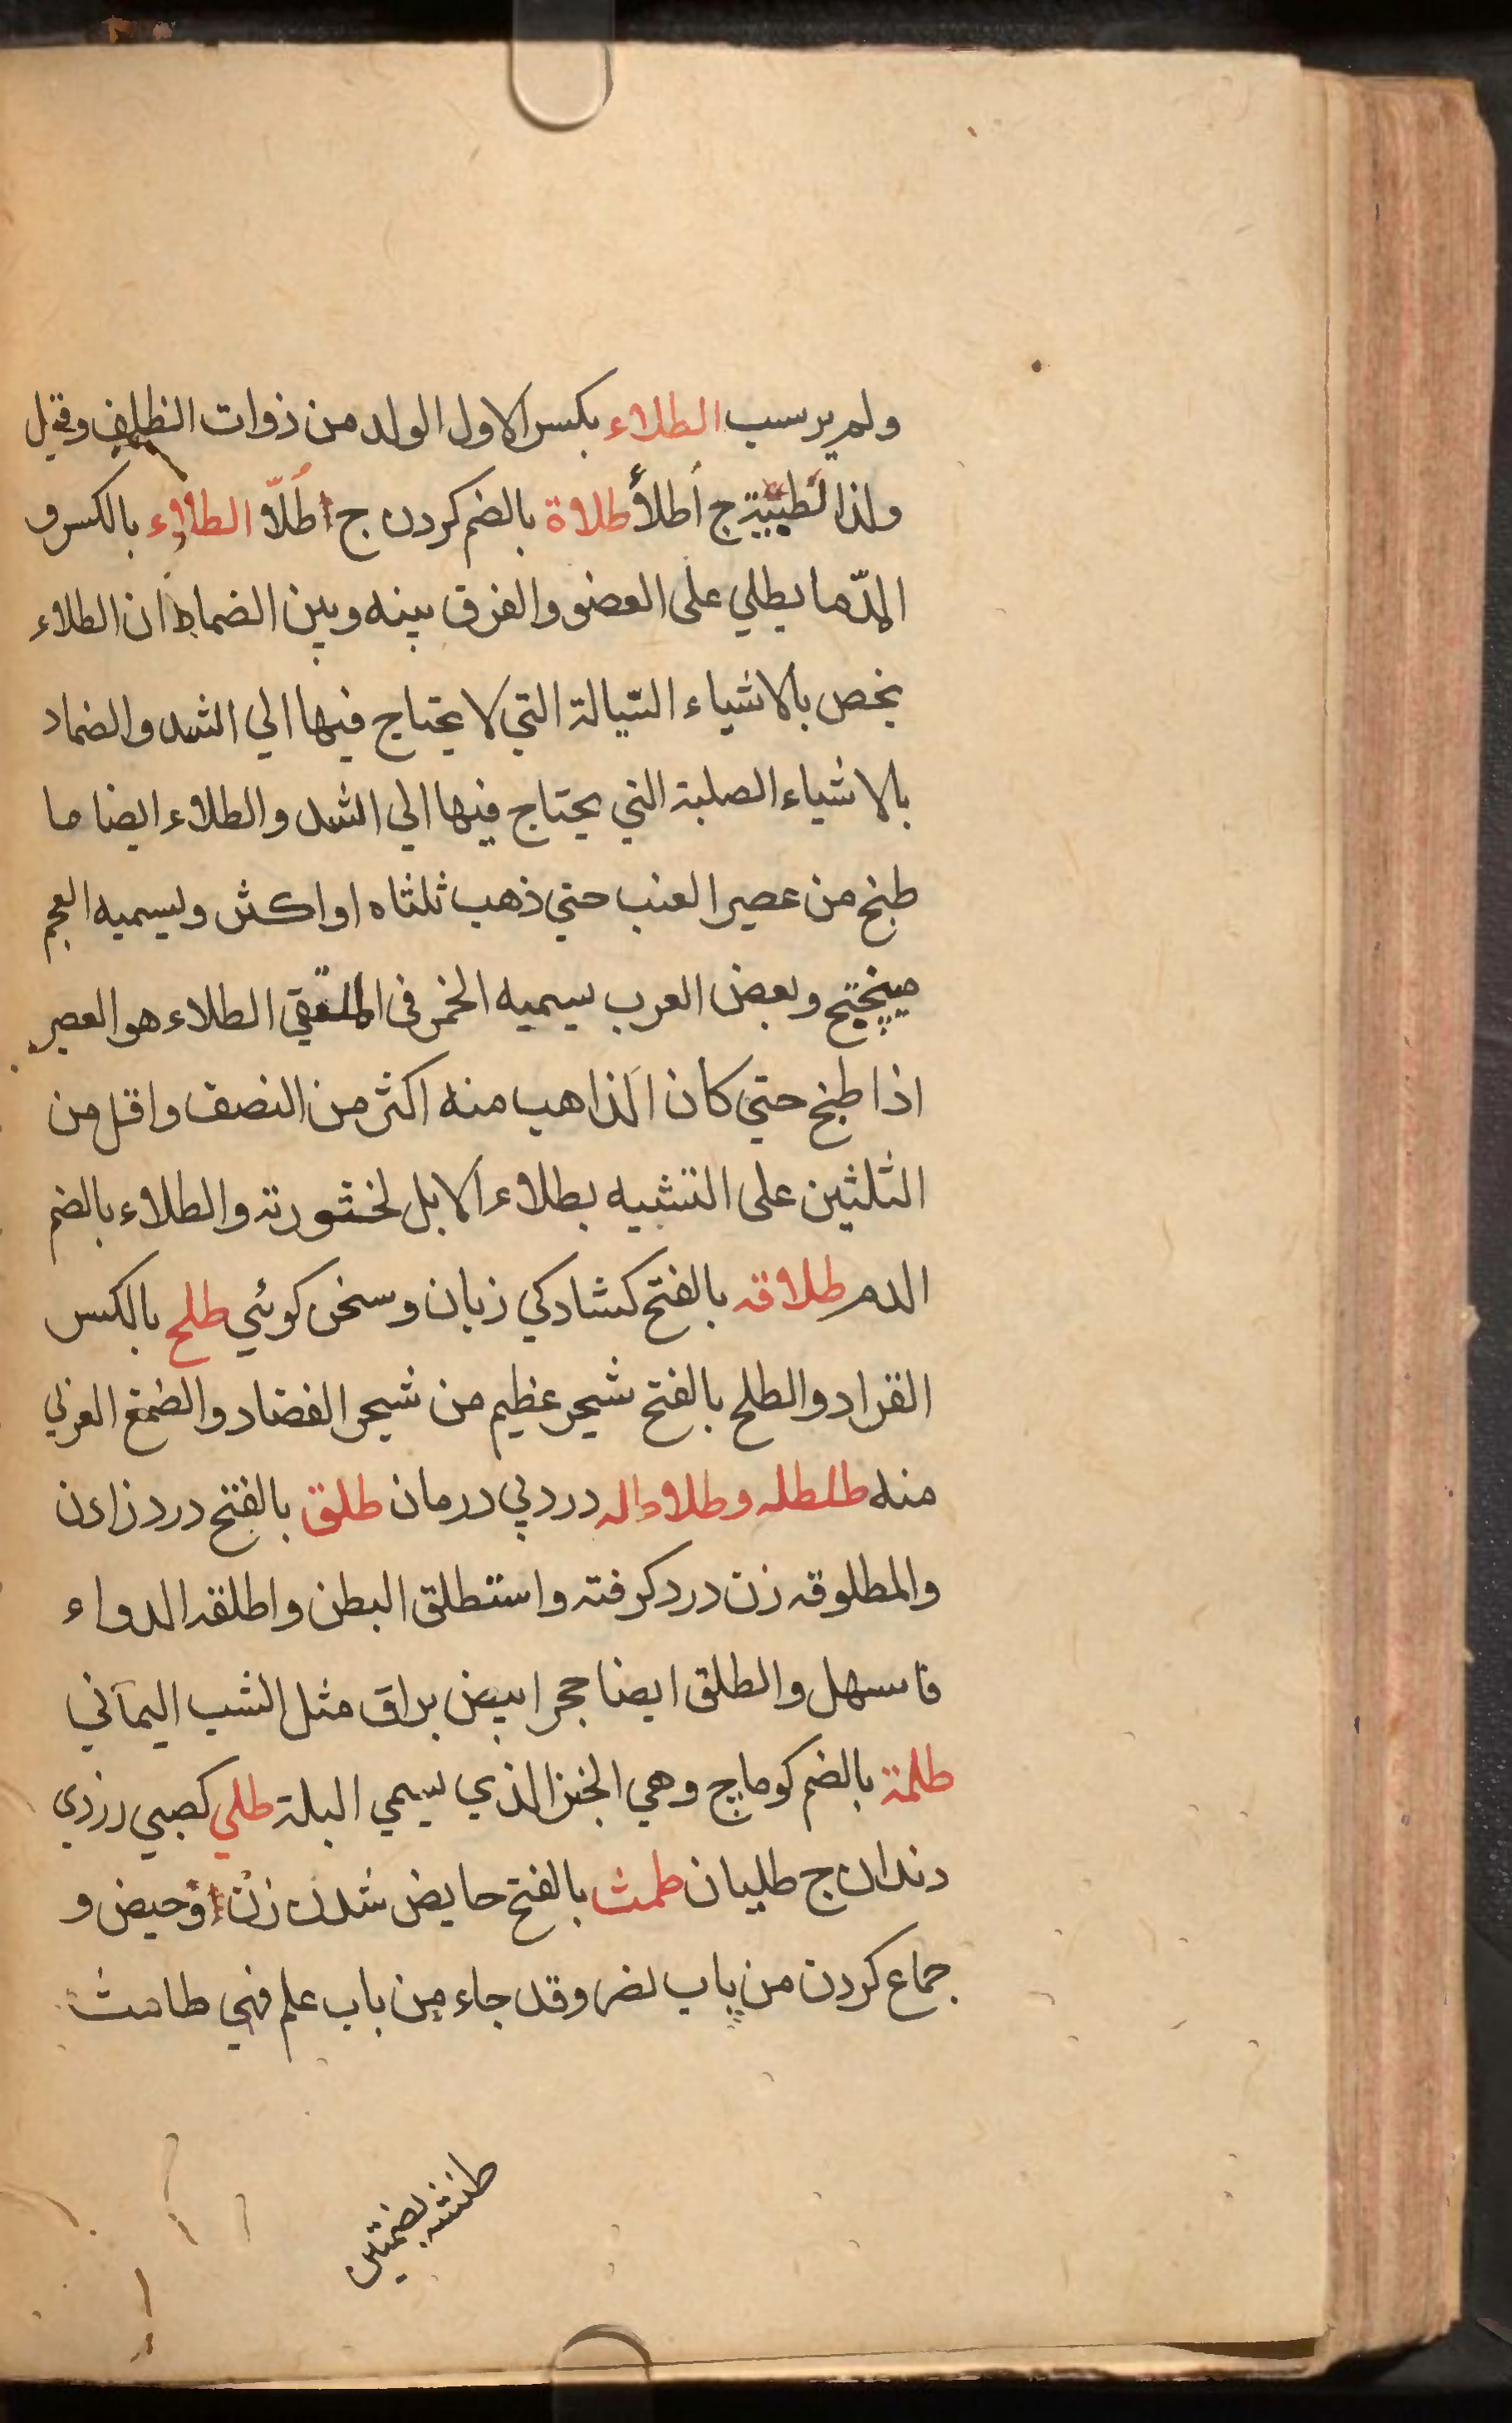 ولم يرسب الطلاء بكسر الاول الولد من ذوات الظلف وقيل
ولذا لظبية ج أطلأ طلاة بالضم كردن ج اطلّا الطلاء بالكسر و
المدّ ما يطلي على العضو والفرق بينه وبين الضماد ان الطلاء
يخص بالاشياء السّيالة التي لا يحتاج فيها الي الشد والضماد
بالاشياء الصلبة التي يحتاج فيها الي الشد والطلاء ايضا ما
طبخ من عصير العنب حتي ذهب ثلثاه او اكثر وليسميه العجم
ميپختج وبعض العرب يسميه الخمر في الطلاء هو العصير
اذا طبخ حتي كان الذاهب منه اكثر من النصف واقل من
الثلثين على التشبيه بطلاء الابل لخثورته والطلاء بالضم
الدم طلاقه بالفتح كشادكي زبان وسخن كوئي طلح بالكسر
القراد والطلح بالفتح شجر عظيم من شجر الغضاد والصمغ العربي
منه طلطله وطلاطله درد بي درمان طلق بالفتح درد زادن
والمطلوقه زن درد كرفته واستطلق البطن واطلقه الدواء
فاسهل والطلق ايضا حجر ابيض براق مثل الشب اليماني
طلمة بالضم كوماج وهي الخبز الذي يسمي البلة طلي كصبي زردي
دندان ج طليان طمث بالفتح حايض شدن زن وحيض و
جماع كردن من باب نصر وقد جاء من باب علم فهي طامث
طنثه بضمتين